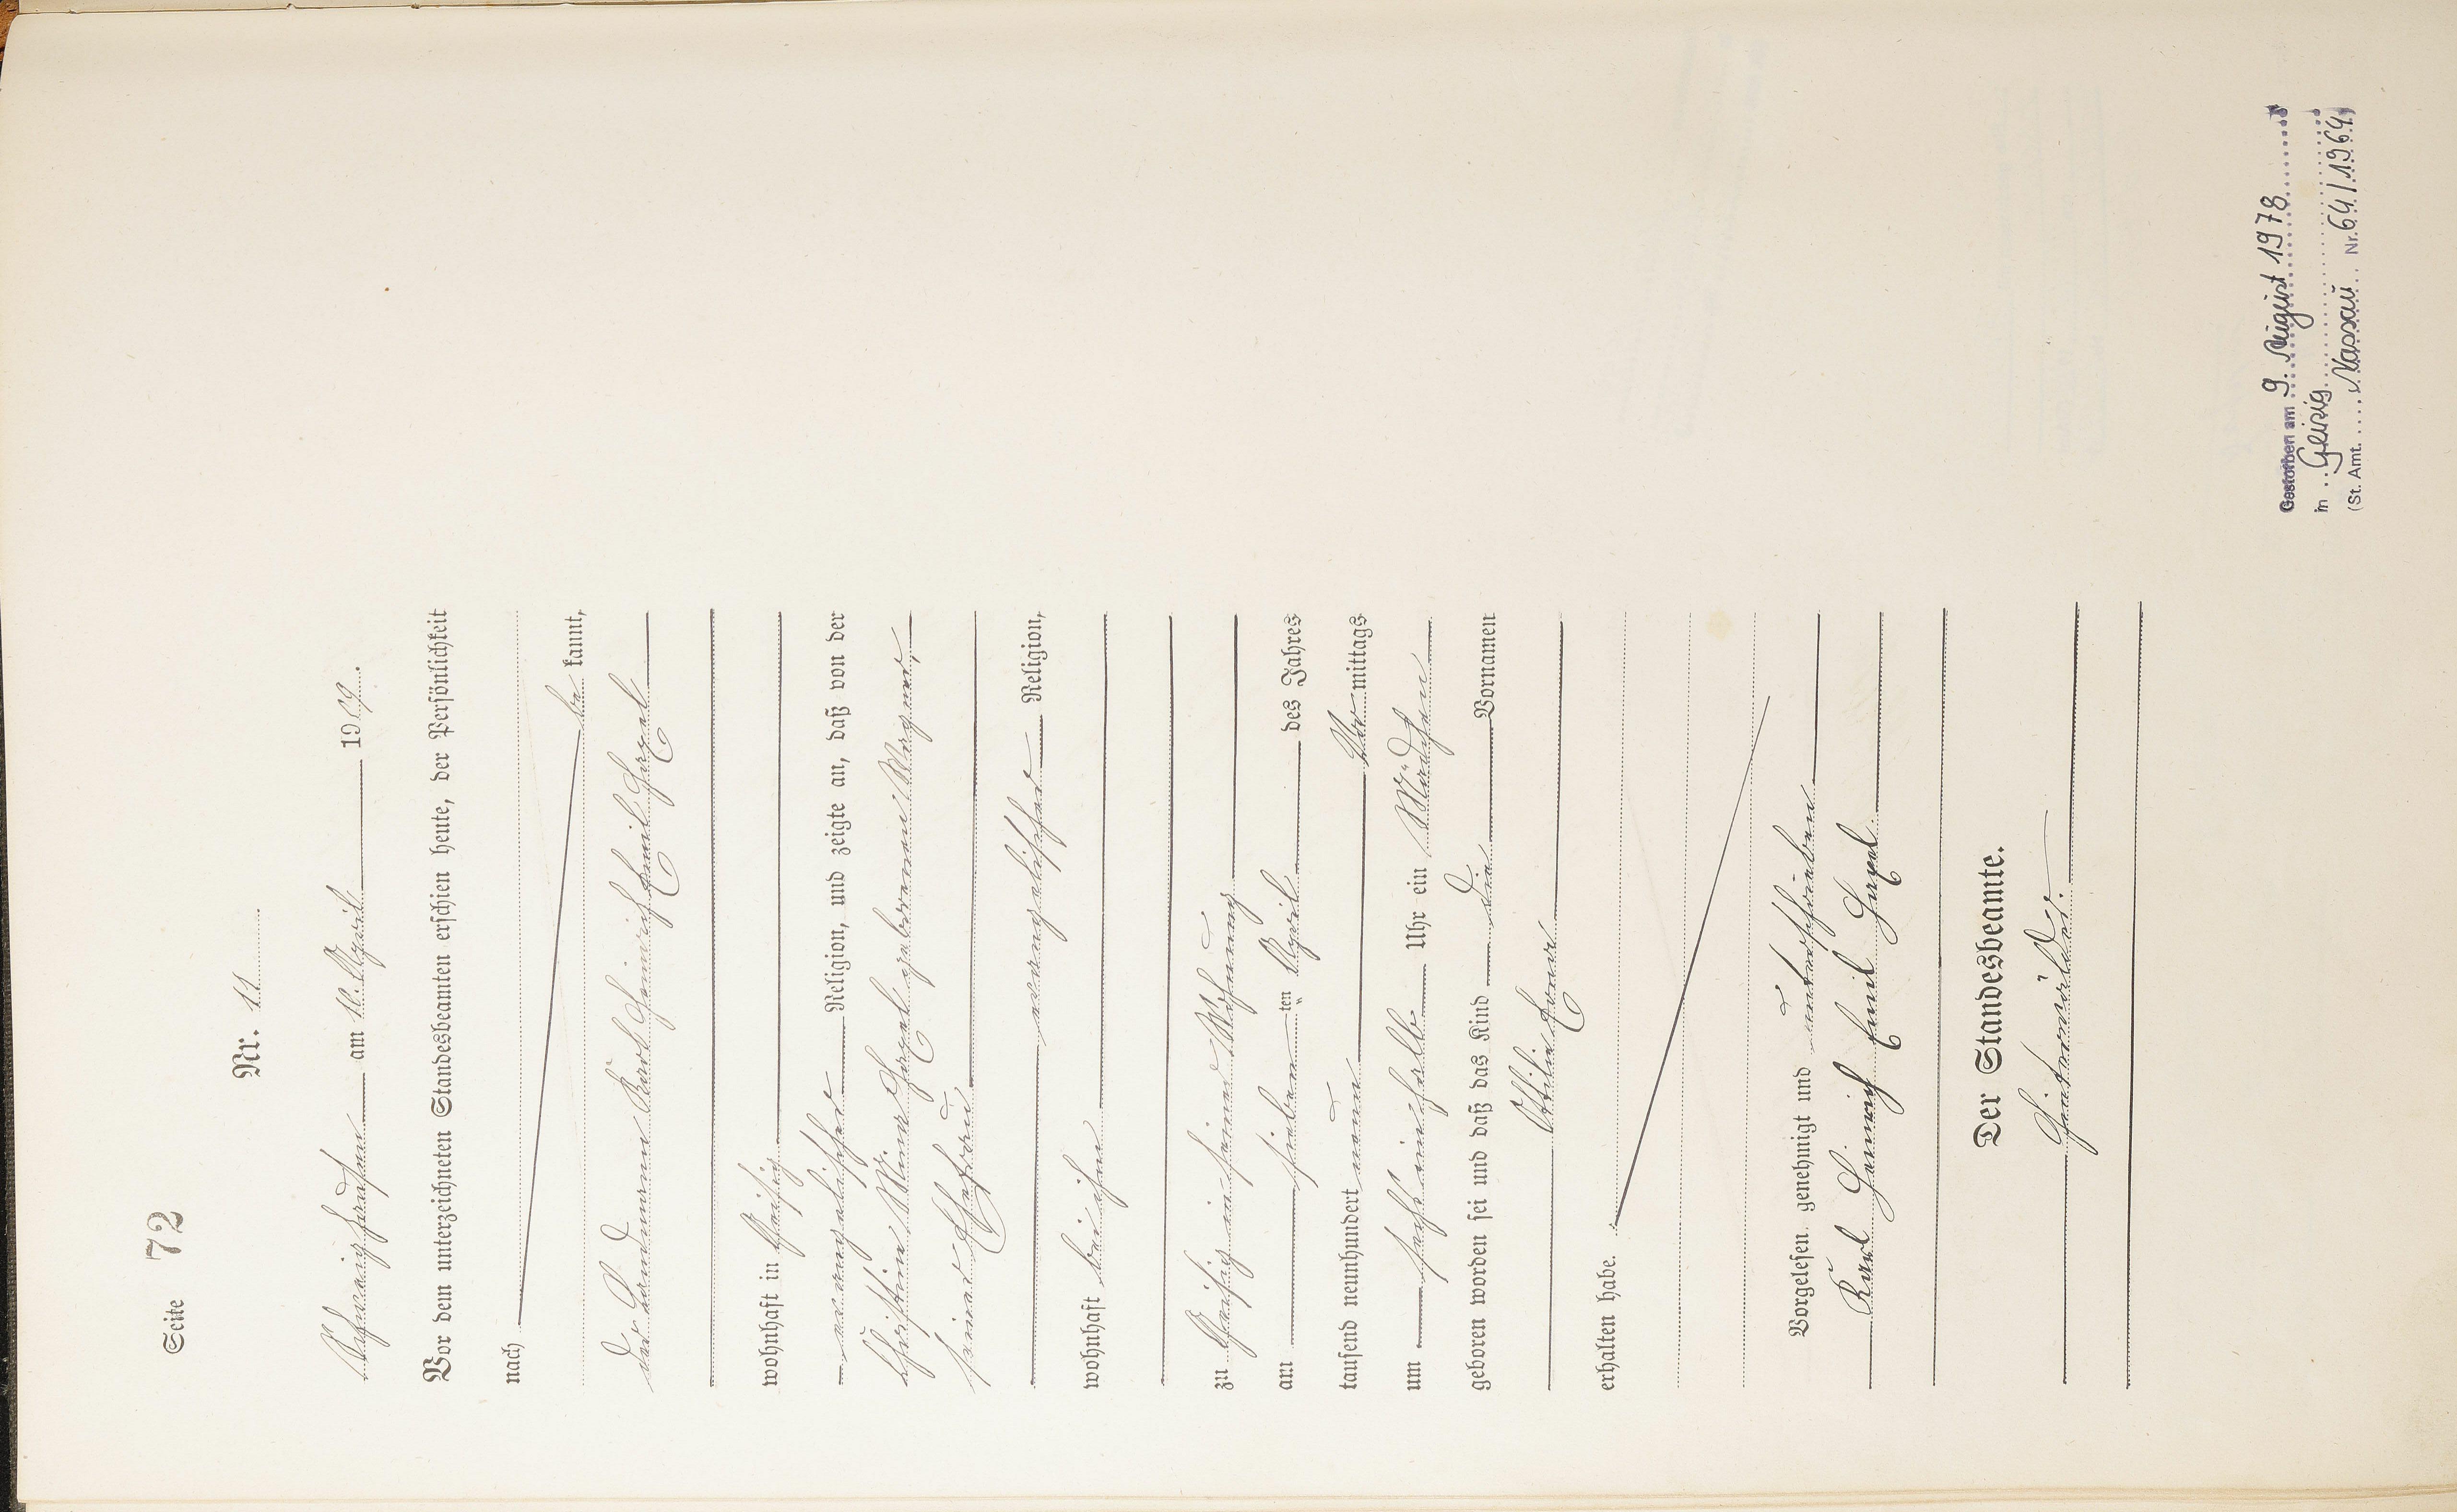 Seite 72
Nr. 11
Schweighausen am 10. April 1909.
Vor dem unterzeichneten Standesbeamten erschien heute, der Persönlichkeit
nach
be kannt,
der Landmann Karl Heinrich Emil
wohnhaft in Geisig
evangelischer Religion, und zeigte an, daß von der
Christine Mina geborenen Wagner,
seiner Ehefrau
evangelischer Religion,
wohnhaft bei ihm
zu Geisig in seiner Wohnung
am sieben ten April des Jahres
tausend neunhundert neun Vor mittags
um sechs einhalb Uhr ein Mädchen
geboren worden sei und daß das Kind die Vornamen
Ottilie Erna
erhalten habe.
Vorgelesen, genehmigt und unterschrieben
Karl Heinrich Emil
Der Standesbeamte.
Gestorben am 9. August 1978
in Geisig
(St. Amt. Nassau Nr. 64/1964)